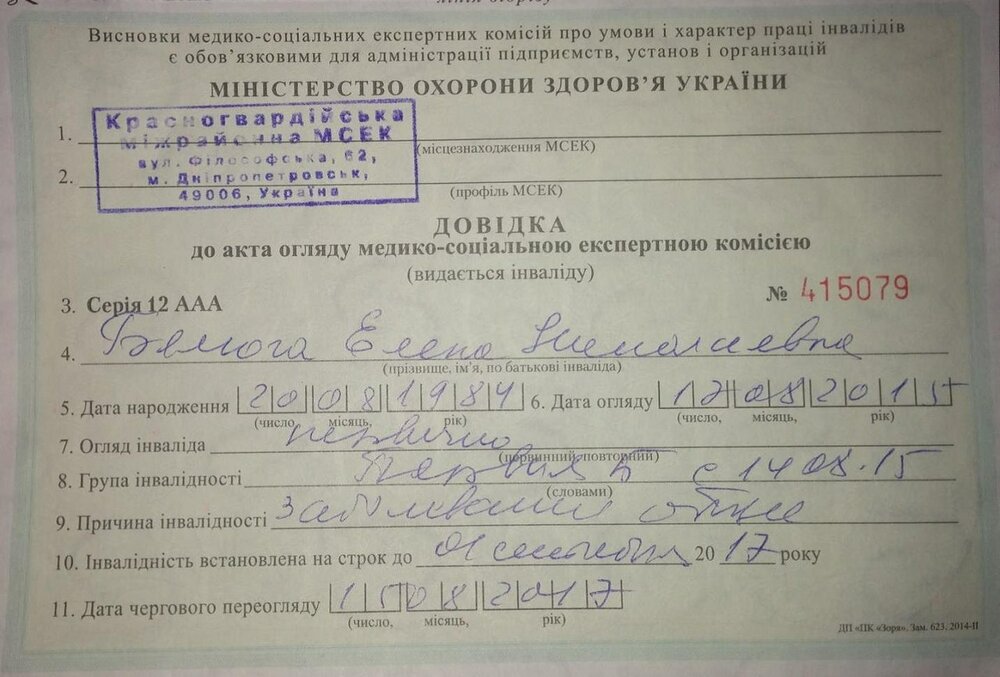 лінія відрізу
Висновки медико-соціальних експертних комісій про умови і характер праці інвалідів
є обов'язковими для адміністрації підприємств, установ і організацій
МІНІСТЕРСТВО ОХОРОНИ ЗДОРОВ'Я УКРАЇНИ
Красногвардійська
міжрайонна МСЕК
вул. Філософська, 62,
м. Дніпропетровськ,
49006, Україна
1.
(місцезнаходження МСЕК)
2.
(профіль МСЕК)
ДОВІДКА
до акта огляду медико-соціальною експертною комісією
(видається інваліду)
3. Серія 12 ААА № 415079
4. Елена Николаевна
(прізвище, ім'я, по батькові інваліда)
5. Дата народження 20081984 6. Дата огляду 17082015
(число, місяць, рік) (число, місяць, рік)
7. Огляд інваліда первично
(первинний, повторний)
8. Група інвалідності Первая Б с 14 08.15
(словами)
9. Причина інвалідності
10. Інвалідність встановлена на строк до 01 сентября 2017 року
11. Дата чергового переогляду 15082017
(число, місяць, рік)
ДП «ПК «Зоря». Зам. 623. 2014-ІІ